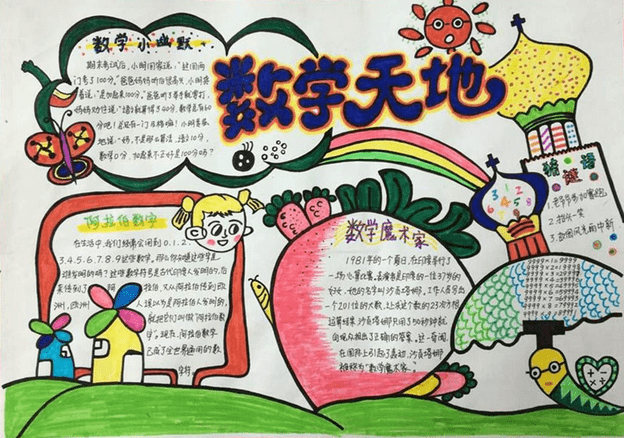 数学天地
数学小幽默
期末考试后，小明回家说："这回两
门考了100分，"爸爸妈妈听后很高兴，小明接
着说："是加起来100分。"爸爸听了举手就要打，
分吧！总况有一门不格嘛！小明委屈
地说："妈，不是那么算法，语文10分，
数学0分，加起来不正好是100分吗？
阿拉伯数字
在生活中，我们经常会用到0.1.2.
3.4.5.6.7.8.9这些数字，那么你知道这些字是
谁发明的吗？这些数字符号是古代印度人发明的，后
来传到了阿拉伯，又从阿拉伯传到欧
洲，欧洲人误以为是阿拉伯人发明的，
就把它们叫做"阿拉伯数
字"。现在，阿拉伯数字
已成了全世界通用的数
字符
数学魔术家
1981年的一个夏日，在印度举行了
一场心算比赛，表演者是印度的一位37岁的
妇女，他的名字叫沙贡塔娜，工作人员写出
一个201位的大数，让求这个数的23次方根
运算结果，沙贡塔娜只用了50秒钟就
向观众报出了正确的答案。这一奇闻，
在国际上引起了轰动，沙贡塔娜
被称为"数学魔术家。"
猜谜语
2.抬头一笑
3.动画风光雨中新
3 1 2
4 5 8
+ - × ÷